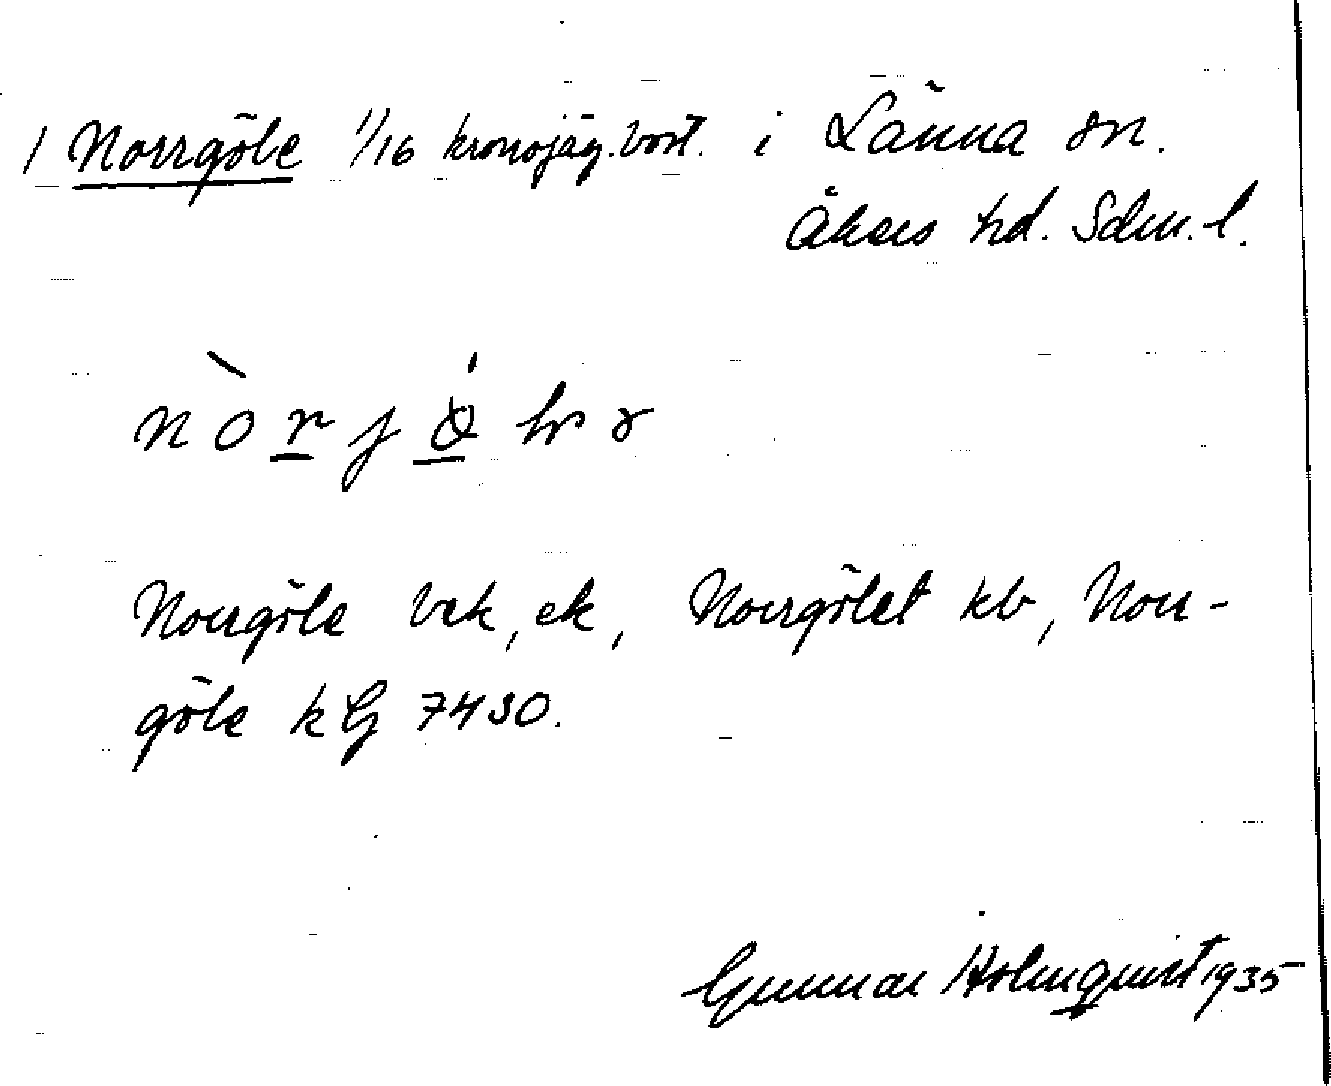 / Norrgöle 1/16 kronojäg.bost. i Länna sn.
Åkers hd. Sdm. l.
Norrgöle vek, ek, Norrgölet kb, Norr-
göle kG 7430.
Gunnar Holmqvist 1935